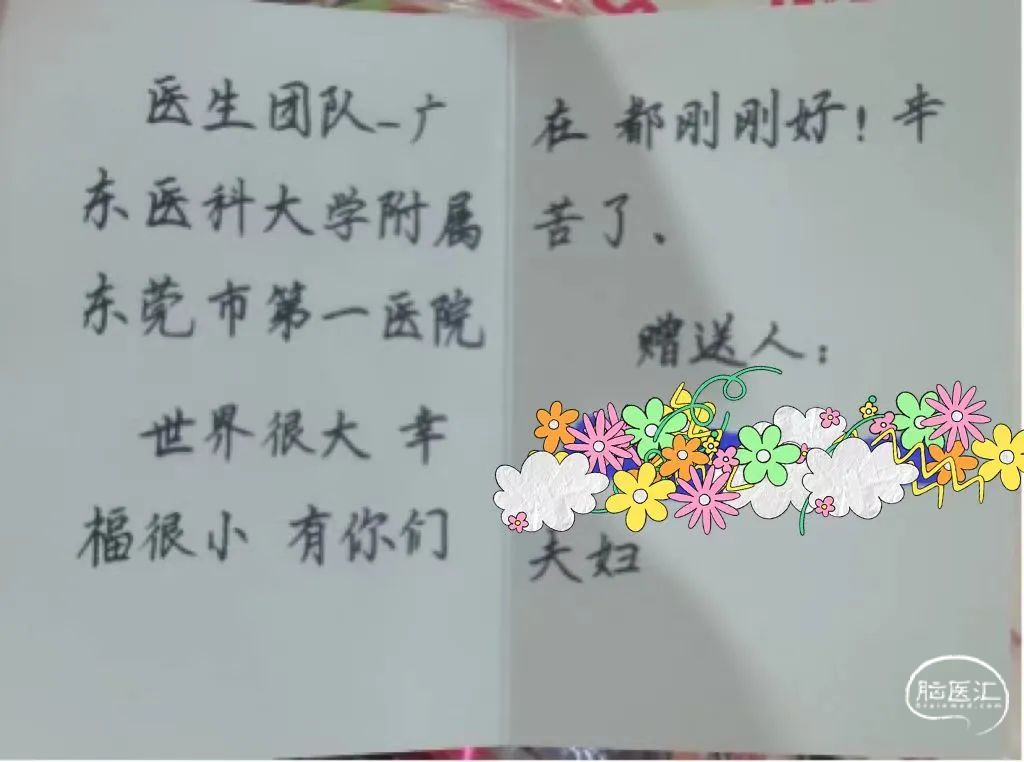 医生团队-广
东医科大学附属
东莞市第一医院
世界很大 幸
福很小 有你们
在 都刚刚好！辛
苦了、
赠送人：
夫妇
脑医汇
brainmed.com